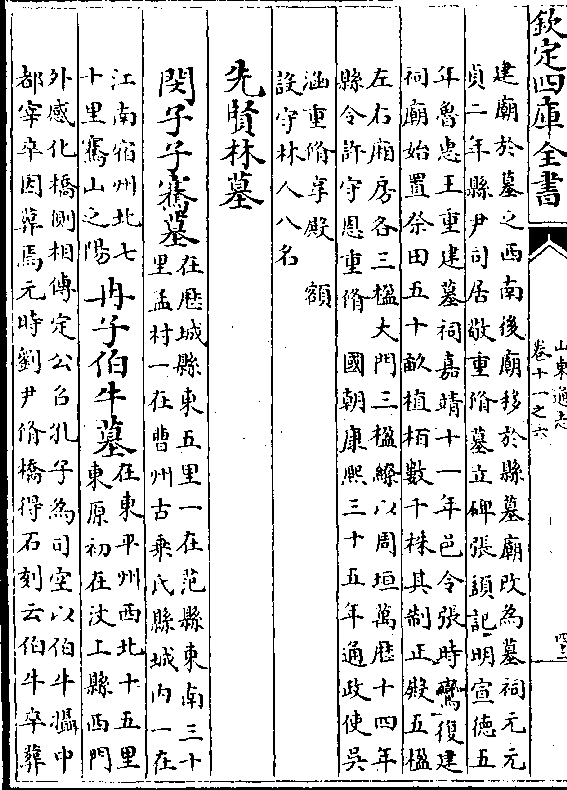 欽定四庫全書
山東通志
卷十一之六
建廟於墓之西南後廟移於縣墓廟改為墓祠元元
貞二年縣尹司居敬重脩墓立碑張記明宣德五
年魯惠王重建墓祠嘉靖十一年邑令張時鸞復建
祠廟始置祭田五十畝植栢數千株其制正殿五楹
左右廂房各三楹大門三楹繚以周垣萬歷十四年
縣令許守恩重脩　國朝康熙三十五年通政使吳
涵重脩享殿　額
設守林人八名
先賢林墓
閔子子騫墓
在歷城縣東五里一在范縣東南三十
里孟村一在曹州古乘氏縣城内一在
江南宿州北七
十里騫山之陽
冉子伯牛墓
在東平州西北十五里
東原初在汶上縣西門
外感化橋側相傳定公以孔子為司空以伯牛攝中
都宰卒因葬焉元時劉尹脩橋得石刻云伯牛卒葬